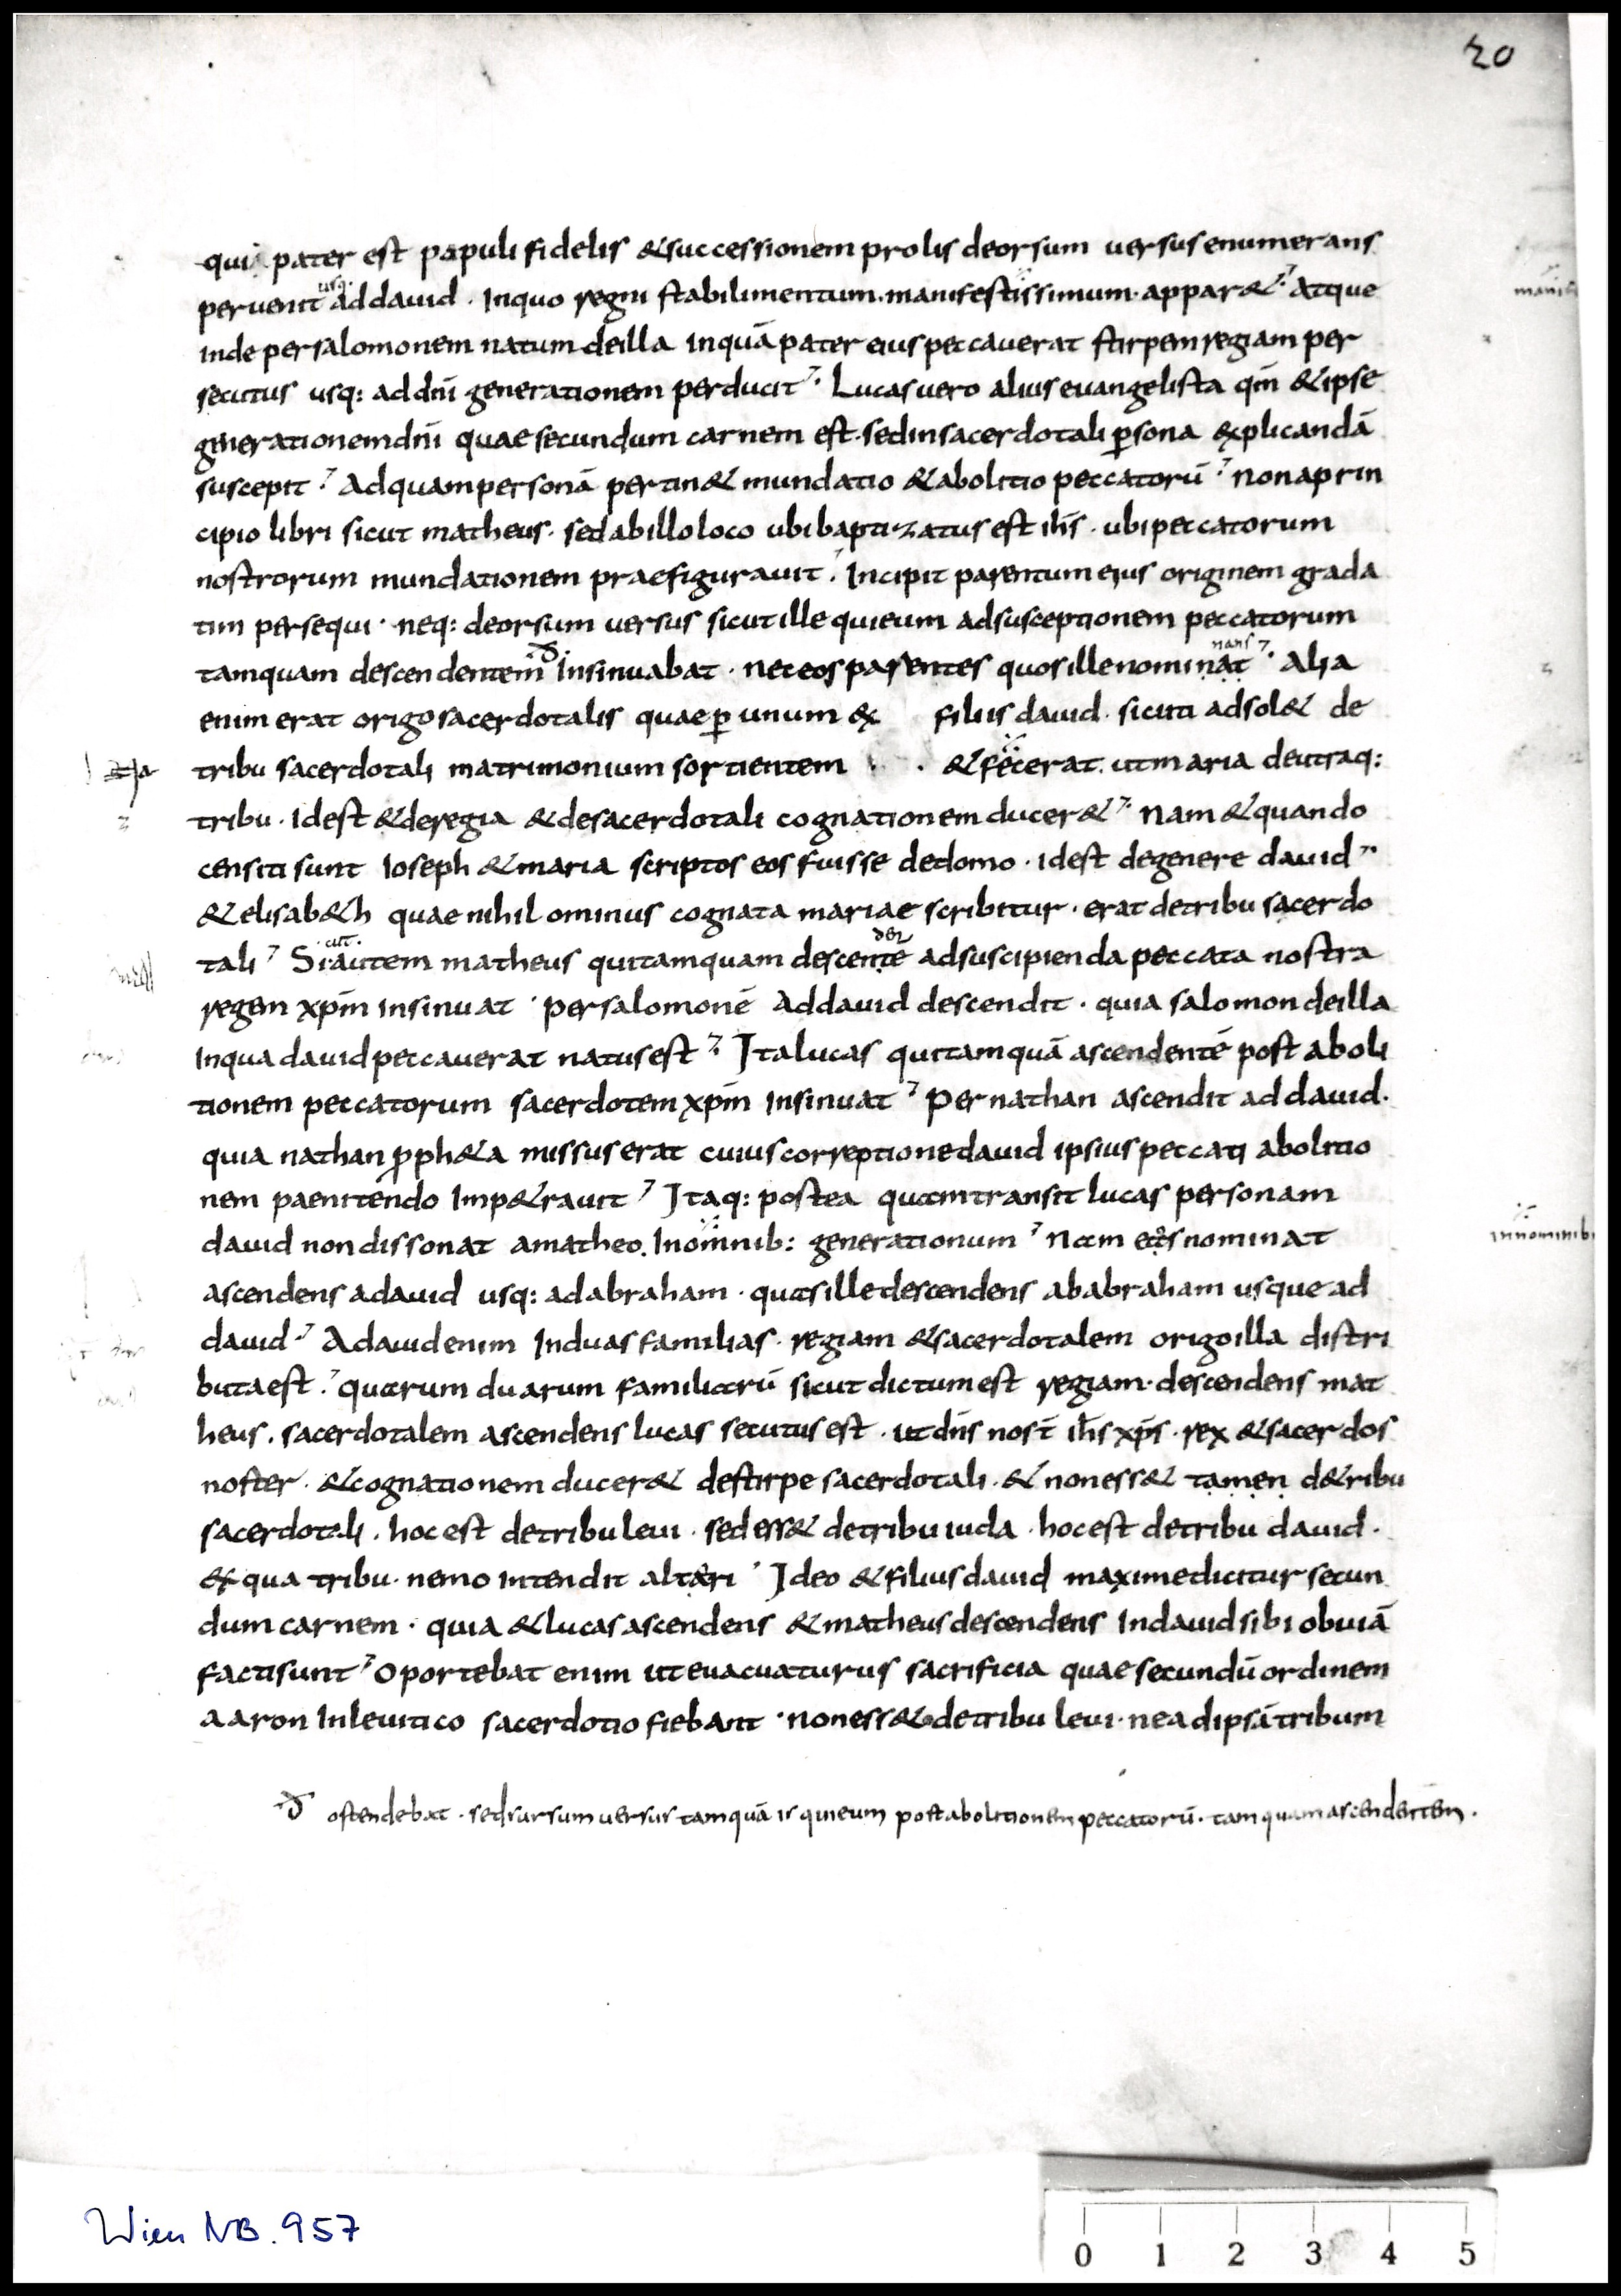 20
qui pater est populi fidelis &successionem prolis deorsum versus enumerans
pervenit usq: addauid · Inquo regni stabilimentum·manifestissimum·appar& Atque
inde persalomonem natum deilla inquā pater eius peccauerat stirpem regiam per
secutus usq: ad dn̄i generationem perducit Lucas uero alius euangelista qm̄ &ipse
generationem dn̄i quae secundum carnem est·sed insacerdotali ꝑsona explicandā
suscepit Adquam personā pertin& mundatio &abolitio peccatorū non aprin
cipio libri sicut matheus· sedabillo loco ubi baptizatus est ih̄s · ubi peccatorum
nostrorum mundationem praefigurauit Incipit parentum eius originem grada
tim persequi· neq: deorsum uersus sicut ille quieum adsusceptionem peccatorum
tamquam descendentem ·ꝺ· Insinuabat · nec eos parentes quos ille nominat nans Alia
enim erat origo sacerdotalis quae ꝑ unum ex filiis dauid · sicuti adsol& de
tribu sacerdotali matrimonium sortientem · &fecerat· ut maria deutraq:
tribu · idest &deregia &desacerdotali cognationem ducer& Nam &quando
censiti sunt Ioseph &maria scriptos eos fuisse dedomo · idest degenere dauid
&elisab&h quae nihil ominus cognata mariae scribitur · erat detribu sacerdo
tali Si cut autem matheus quitamquam descente den adsuscipienda peccata nostra
regem xpm̄ insinuat · persalomonē addauid descendit · quia salomon deilla
Inqua dauid peccauerat natus est Ita lucas quitamquā ascendentē post aboli
tionem peccatorum sacerdotem xpm̄ insinuat Per nathan ascendit addauid·
quia nathan ꝓph&a missus erat cuius correptione dauid ipsius peccati abolitio
nem paenitendo Imp&rauit Itaq: postea quam transit lucas personam
dauid non dissonat amatheo. Inomnib: generationum Nam eos nominat
ascendens adauid usq: adabraham · quas ille descendens ababraham usque ad
dauid Adauid enim Induas familias · regiam &sacerdotalem origo illa distri
buta est quarum duarum familiarū sicut dictum est regiam·descendens mat
heus · sacerdotalem ascendens lucas secutus est · ut dn̄s nost̄ ih̄s xp̄s · rex &sacerdos
noster · &cognationem ducer& destirpe sacerdotali · & non ess& tamen d&ribu
sacerdotali · hoc est detribu leui · sed ess& detribu iuda · hoc est detribu dauid ·
ex qua tribu · nemo intendit altari Ideo &filius dauid maxime dicitur secun
dum carnem · quia &lucas ascendens &matheus descendens Indauid sibi obuiā
facti sunt Oportebat enim ut euacuaturus sacrificia quae secundū ordinem
aaron Inleuitico sacerdotio fiebant · non ess& detribu leui · nea dipsā tribum
ꝺ ostendebat · sed sursum uersus tamquā is quieum post abolitionem peccatorū · tamquam ascendentem ·
Wien NB. 957
0 1 2 3 4 5